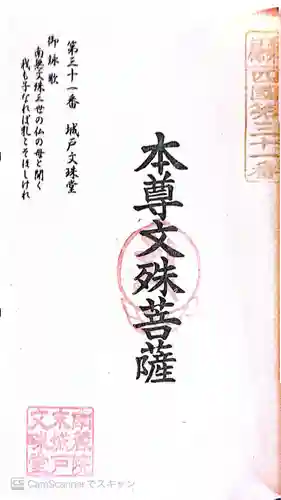 四國第三十一番
本尊文殊菩薩
第三十一番 城戸文珠堂
御詠歌
南無文珠三世の仏の母と聞く
我も子なれば乳こそほしけれ
末城戸
文珠堂
CS CamScannerでスキャン